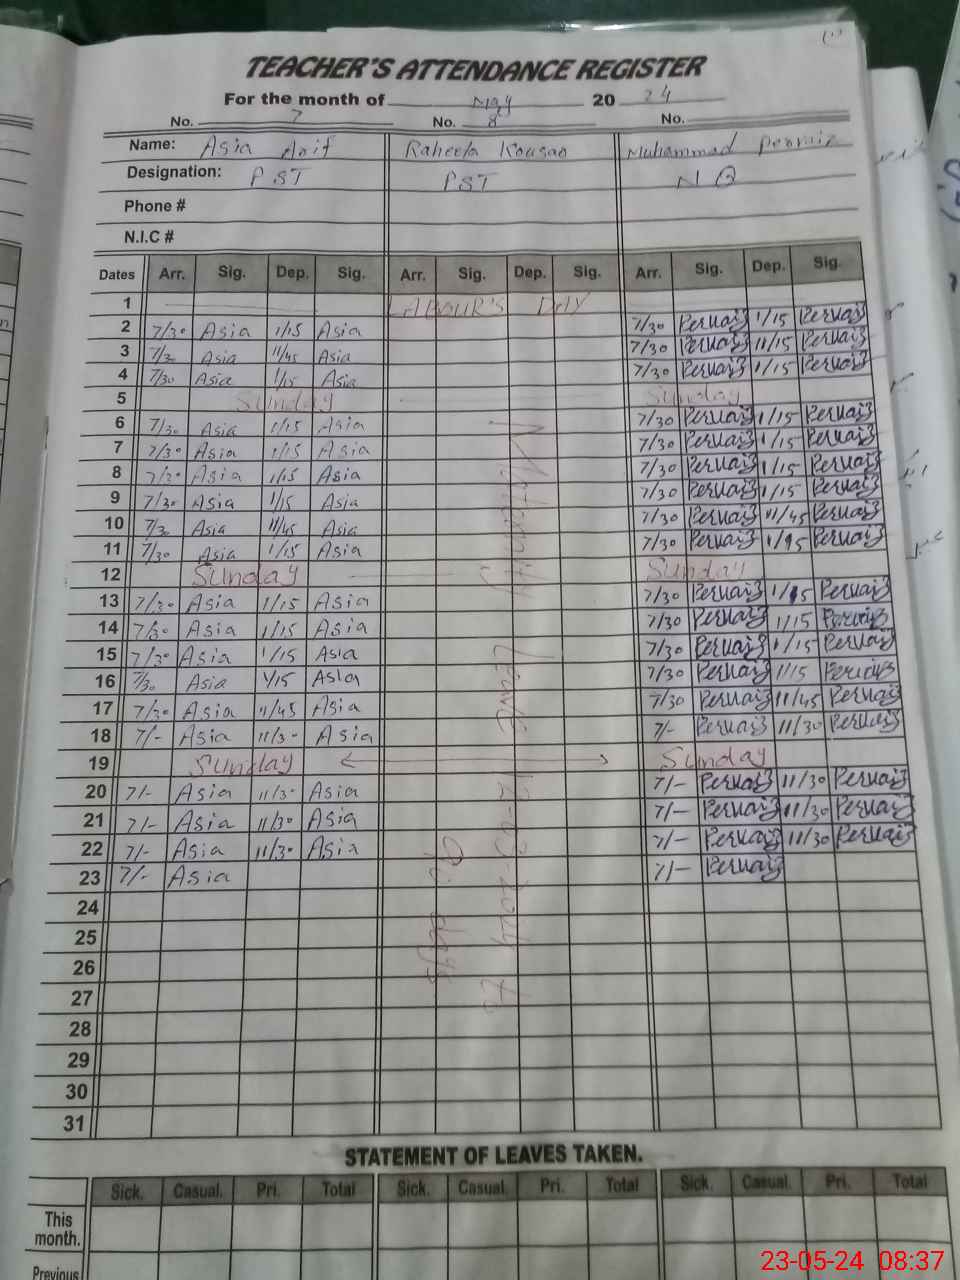 TEACHER'S ATTENDANCE REGISTER
For the month of May 20 24
No. 7 No. 8 No.
Name: Asia Arif Raheela Kousar Muhammad Pervaiz
Designation: PST PST N Q
Phone #
N.I.C #
Dates Arr. Sig. Dep. Sig. Arr. Sig. Dep. Sig. Arr. Sig. Dep. Sig.
1 LABOUR'S DAY
2 7/30 Asia 1/15 Asia 7/30 Pervaiz 1/15 Pervaiz
3 7/30 Asia 11/45 Asia 7/30 Pervaiz 11/15 Pervaiz
4 7/30 Asia 1/15 Asia 7/30 Pervaiz 1/15 Pervaiz
5 Sunday Sunday
6 7/30 Asia 1/15 Asia 7/30 Pervaiz 1/15 Pervaiz
7 7/30 Asia 1/15 Asia 7/30 Pervaiz 1/15 Pervaiz
8 7/30 Asia 1/15 Asia 7/30 Pervaiz 1/15 Pervaiz
9 7/30 Asia 1/15 Asia 7/30 Pervaiz 1/15 Pervaiz
10 7/30 Asia 11/45 Asia 7/30 Pervaiz 11/45 Pervaiz
11 7/30 Asia 1/15 Asia 7/30 Pervaiz 1/15 Pervaiz
12 Sunday Sunday
13 7/30 Asia 1/15 Asia 7/30 Pervaiz 1/15 Pervaiz
14 7/30 Asia 1/15 Asia 7/30 Pervaiz 1/15 Pervaiz
15 7/30 Asia 1/15 Asia 7/30 Pervaiz 1/15 Pervaiz
16 7/30 Asia 1/15 Asia 7/30 Pervaiz 1/15 Pervaiz
17 7/30 Asia 11/45 Asia 7/30 Pervaiz 11/45 Pervaiz
18 7/- Asia 11/30 Asia 7/- Pervaiz 11/30 Pervaiz
19 Sunday Sunday
20 7/- Asia 11/30 Asia 7/- Pervaiz 11/30 Pervaiz
21 7/- Asia 11/30 Asia 7/- Pervaiz 11/30 Pervaiz
22 7/- Asia 11/30 Asia 7/- Pervaiz 11/30 Pervaiz
23 7/- Asia 7/- Pervaiz
24
25
26
27
28
29
30
31
Maternity Leave
90 days
STATEMENT OF LEAVES TAKEN.
Sick. Casual. Pri. Total Sick. Casual. Pri. Total Sick. Casual. Pri. Total
This month.
Previous
23-05-24 08:37